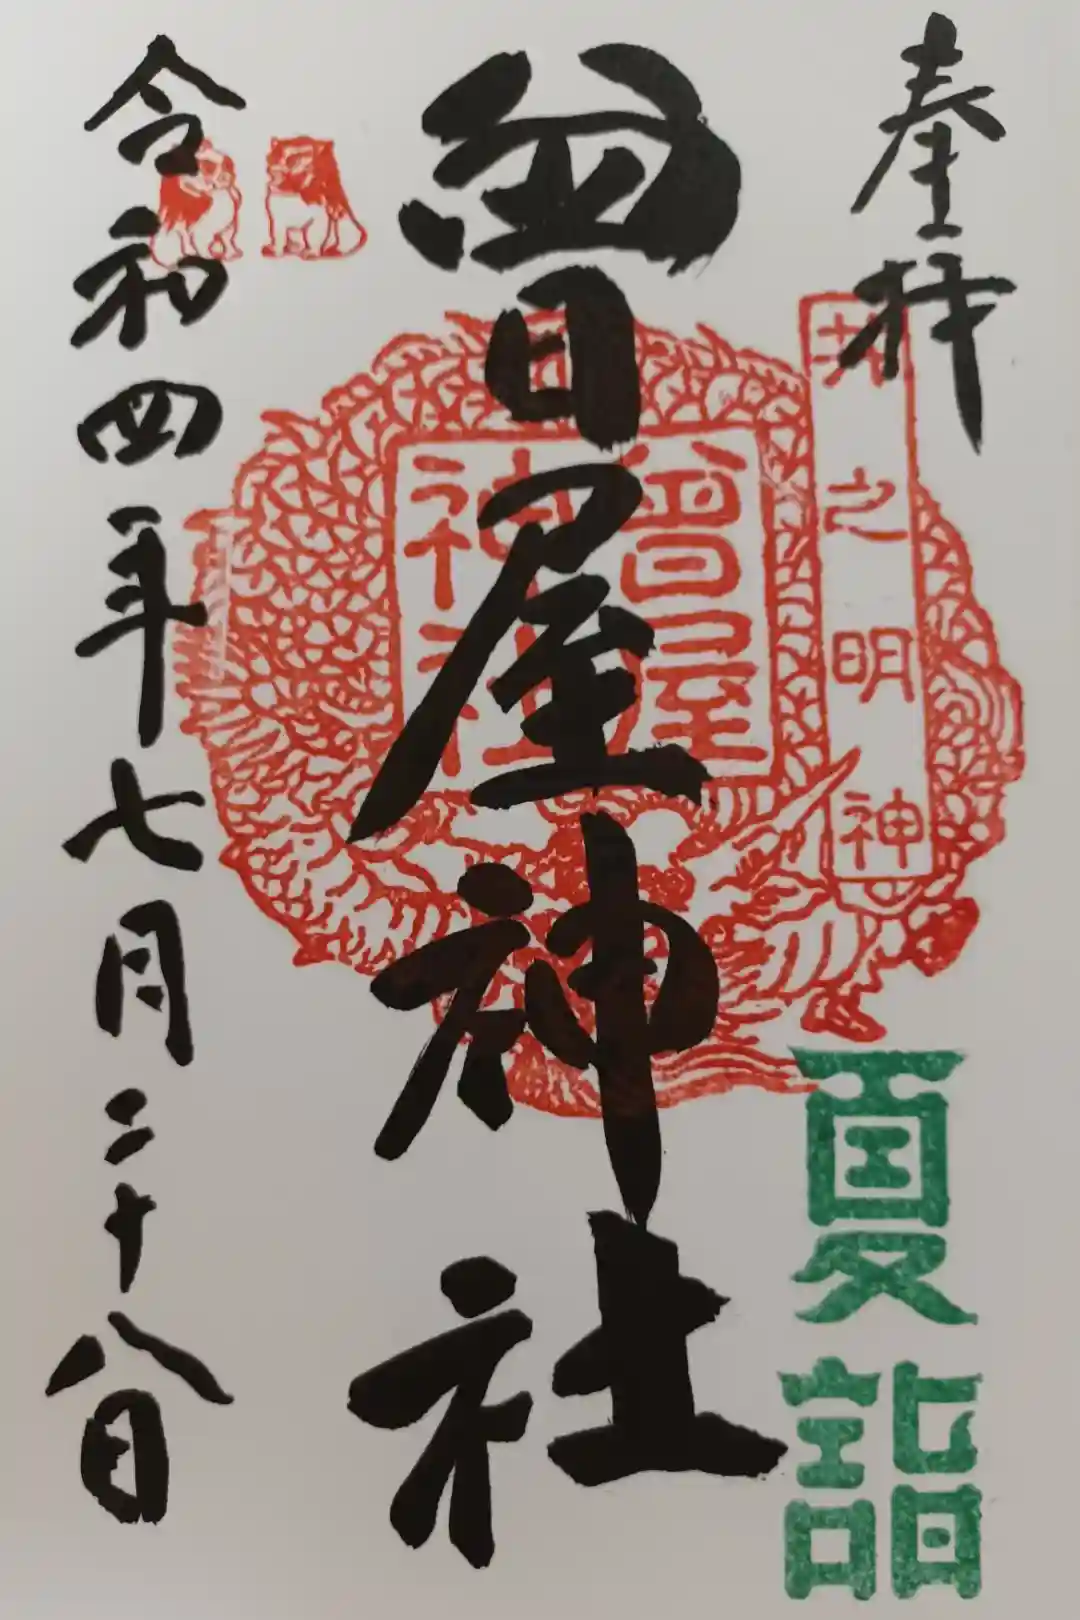 奉拝
井之明神
夏詣
曾屋神社
曾屋
神社
令和四年七月二十八日